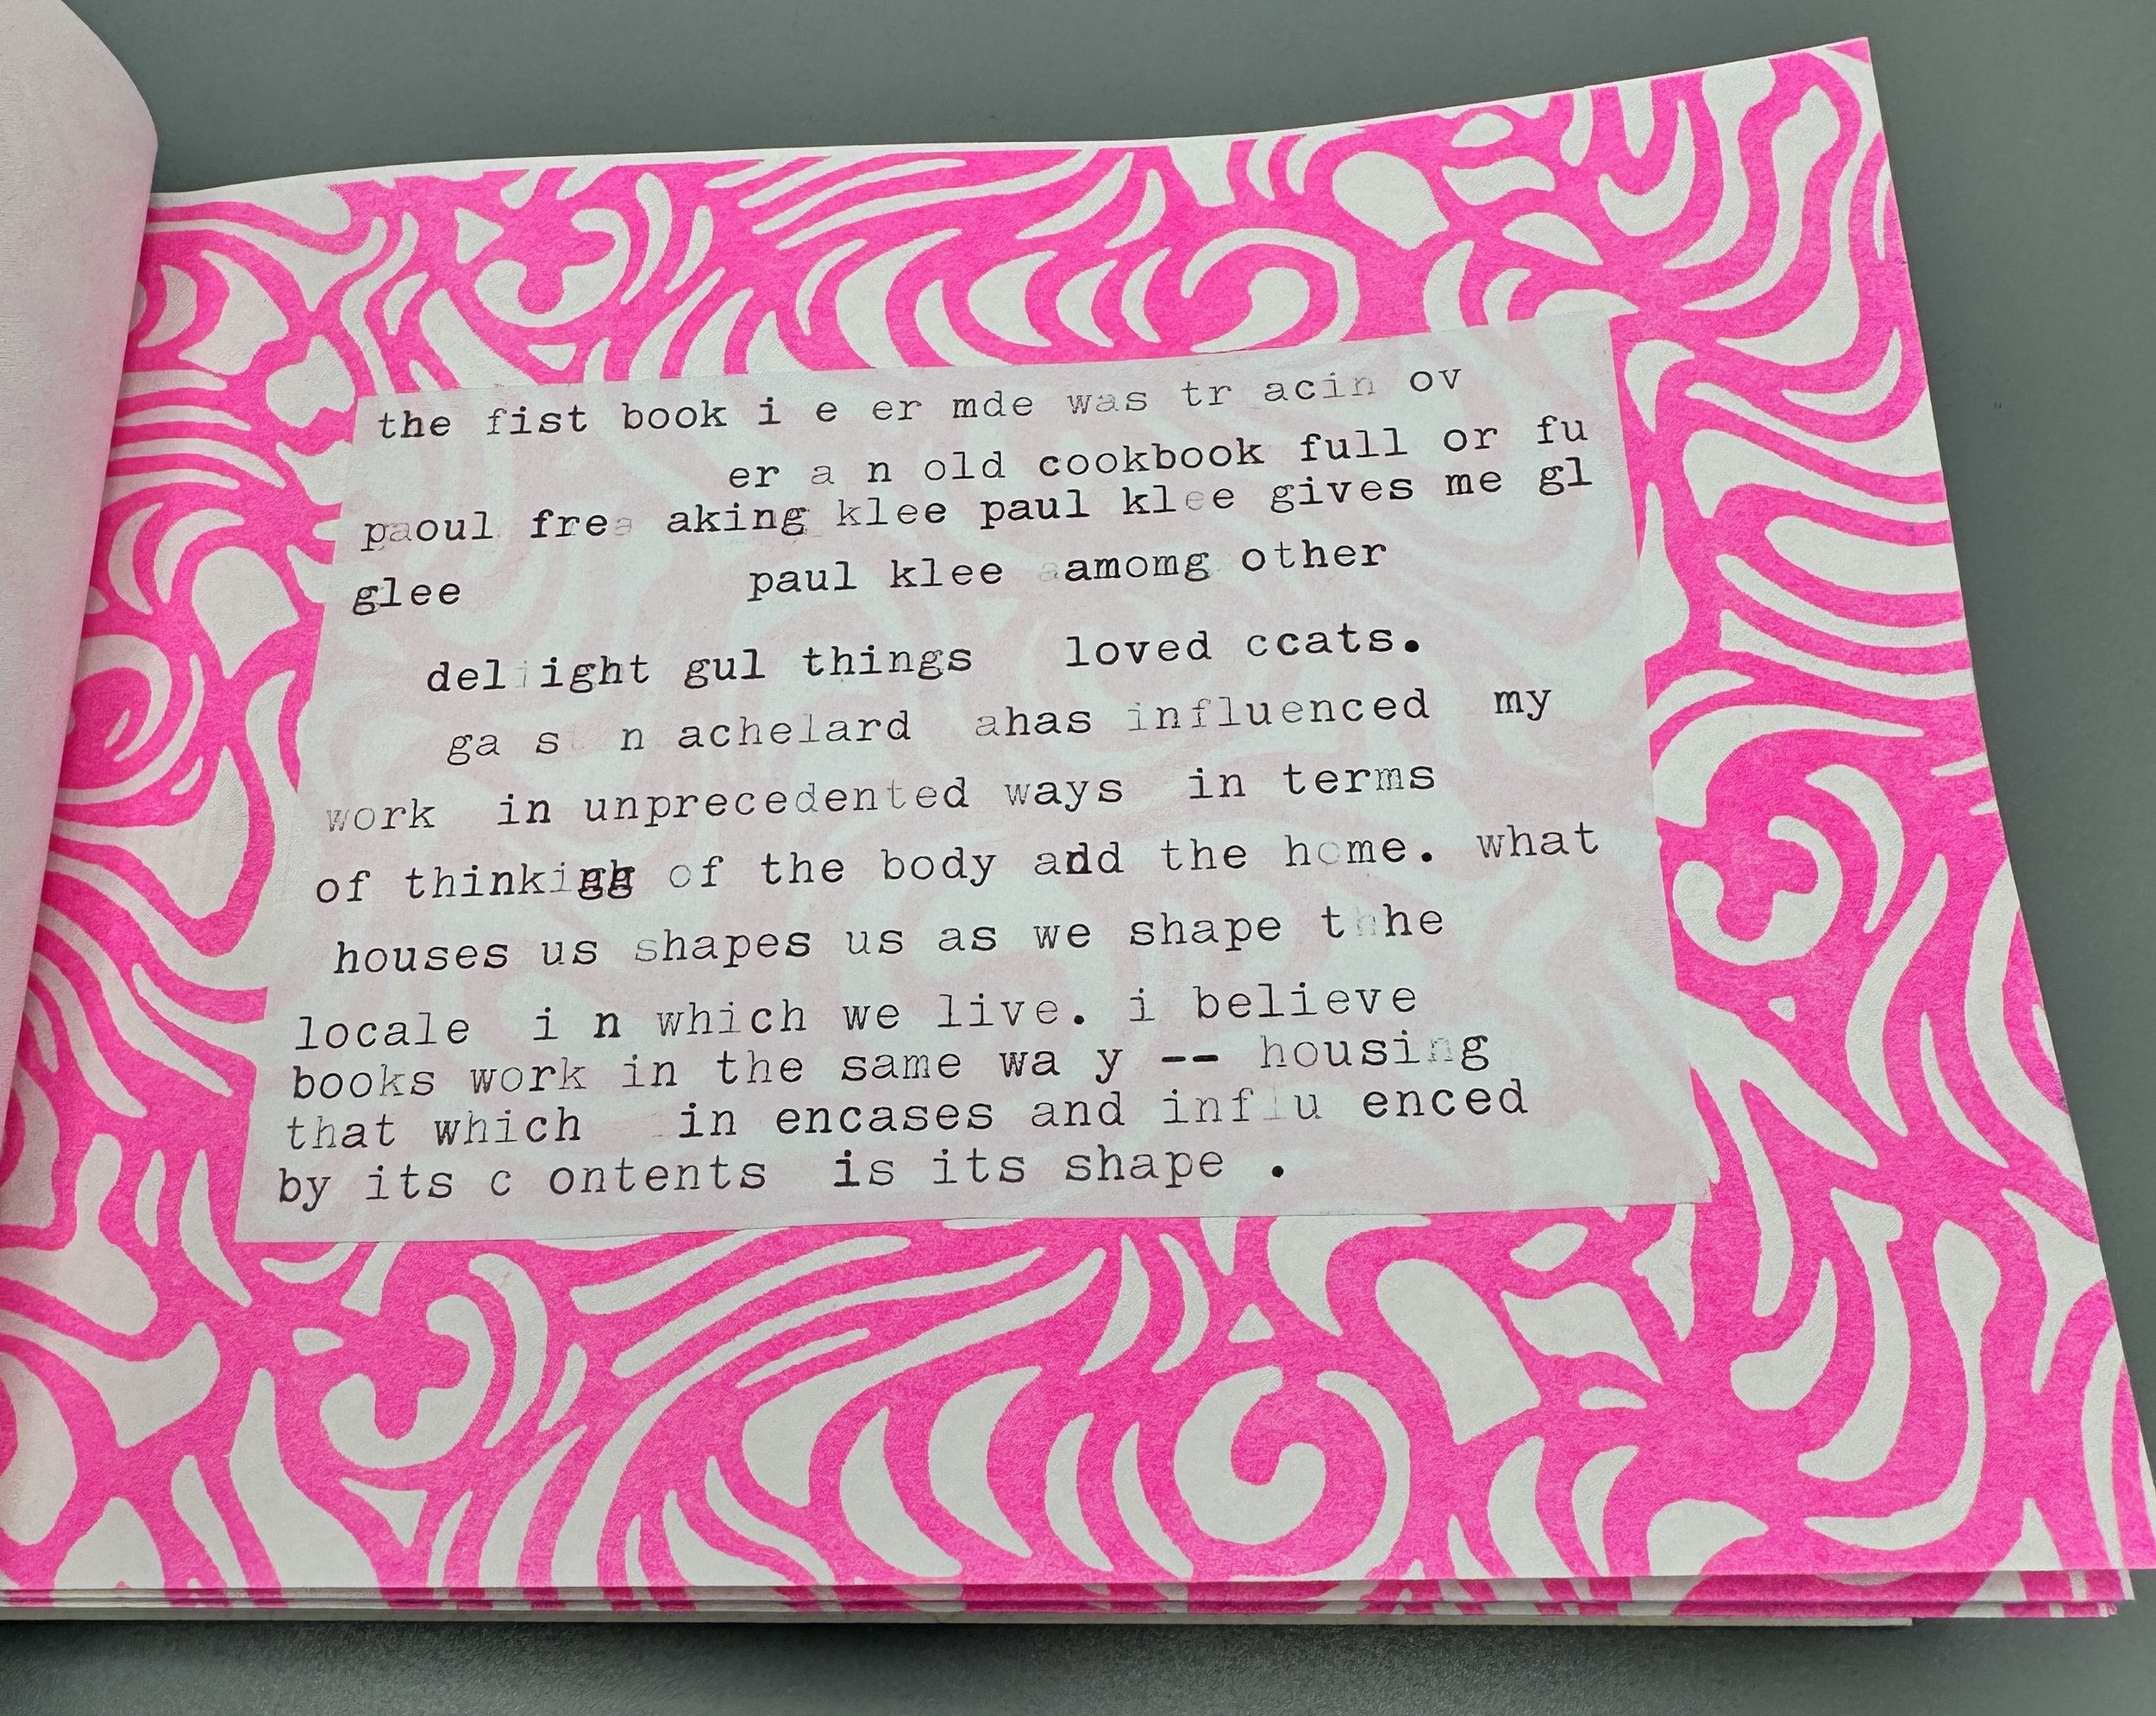 the fist book i e er mde was tr acin ov
er a n old cookbook full or fu
paoul frea aking klee paul klee gives me gl
glee paul klee aamomg other
deliight gul things loved ccats.
ga s n achelard ahas influenced my
work in unprecedented ways in terms
of thinkigg of the body add the home. what
houses us shapes us as we shape thhe
locale i n which we live. i believe
books work in the same wa y -- housing
that which in encases and influ enced
by its c ontents is its shape .